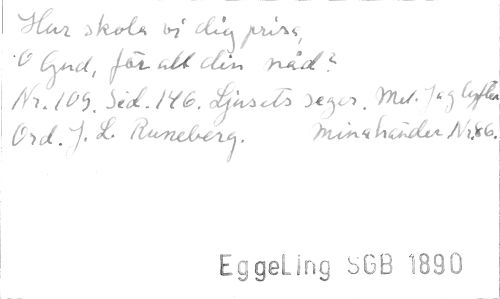 Hur skola vi dig prisa,
O Gud, för all din nåd?
Nr. 109. Sid. 146. Ljusets seger. Mel. Jag lyfter
Ord. J. L. Runeberg. mina händer Nr. 86.
EggeLing SGB 1890